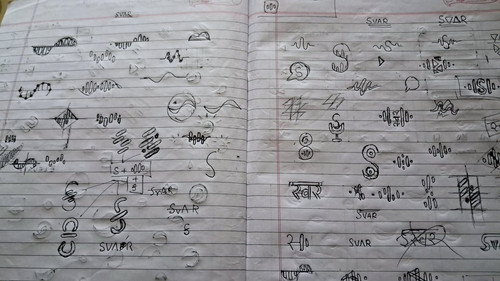 SVAR
S +
S
SVAR
SVAR
S
SVAPR
SVAR
SVAR
S
S
S
S
S
स्वर
SVAR
SVAR
स्वर